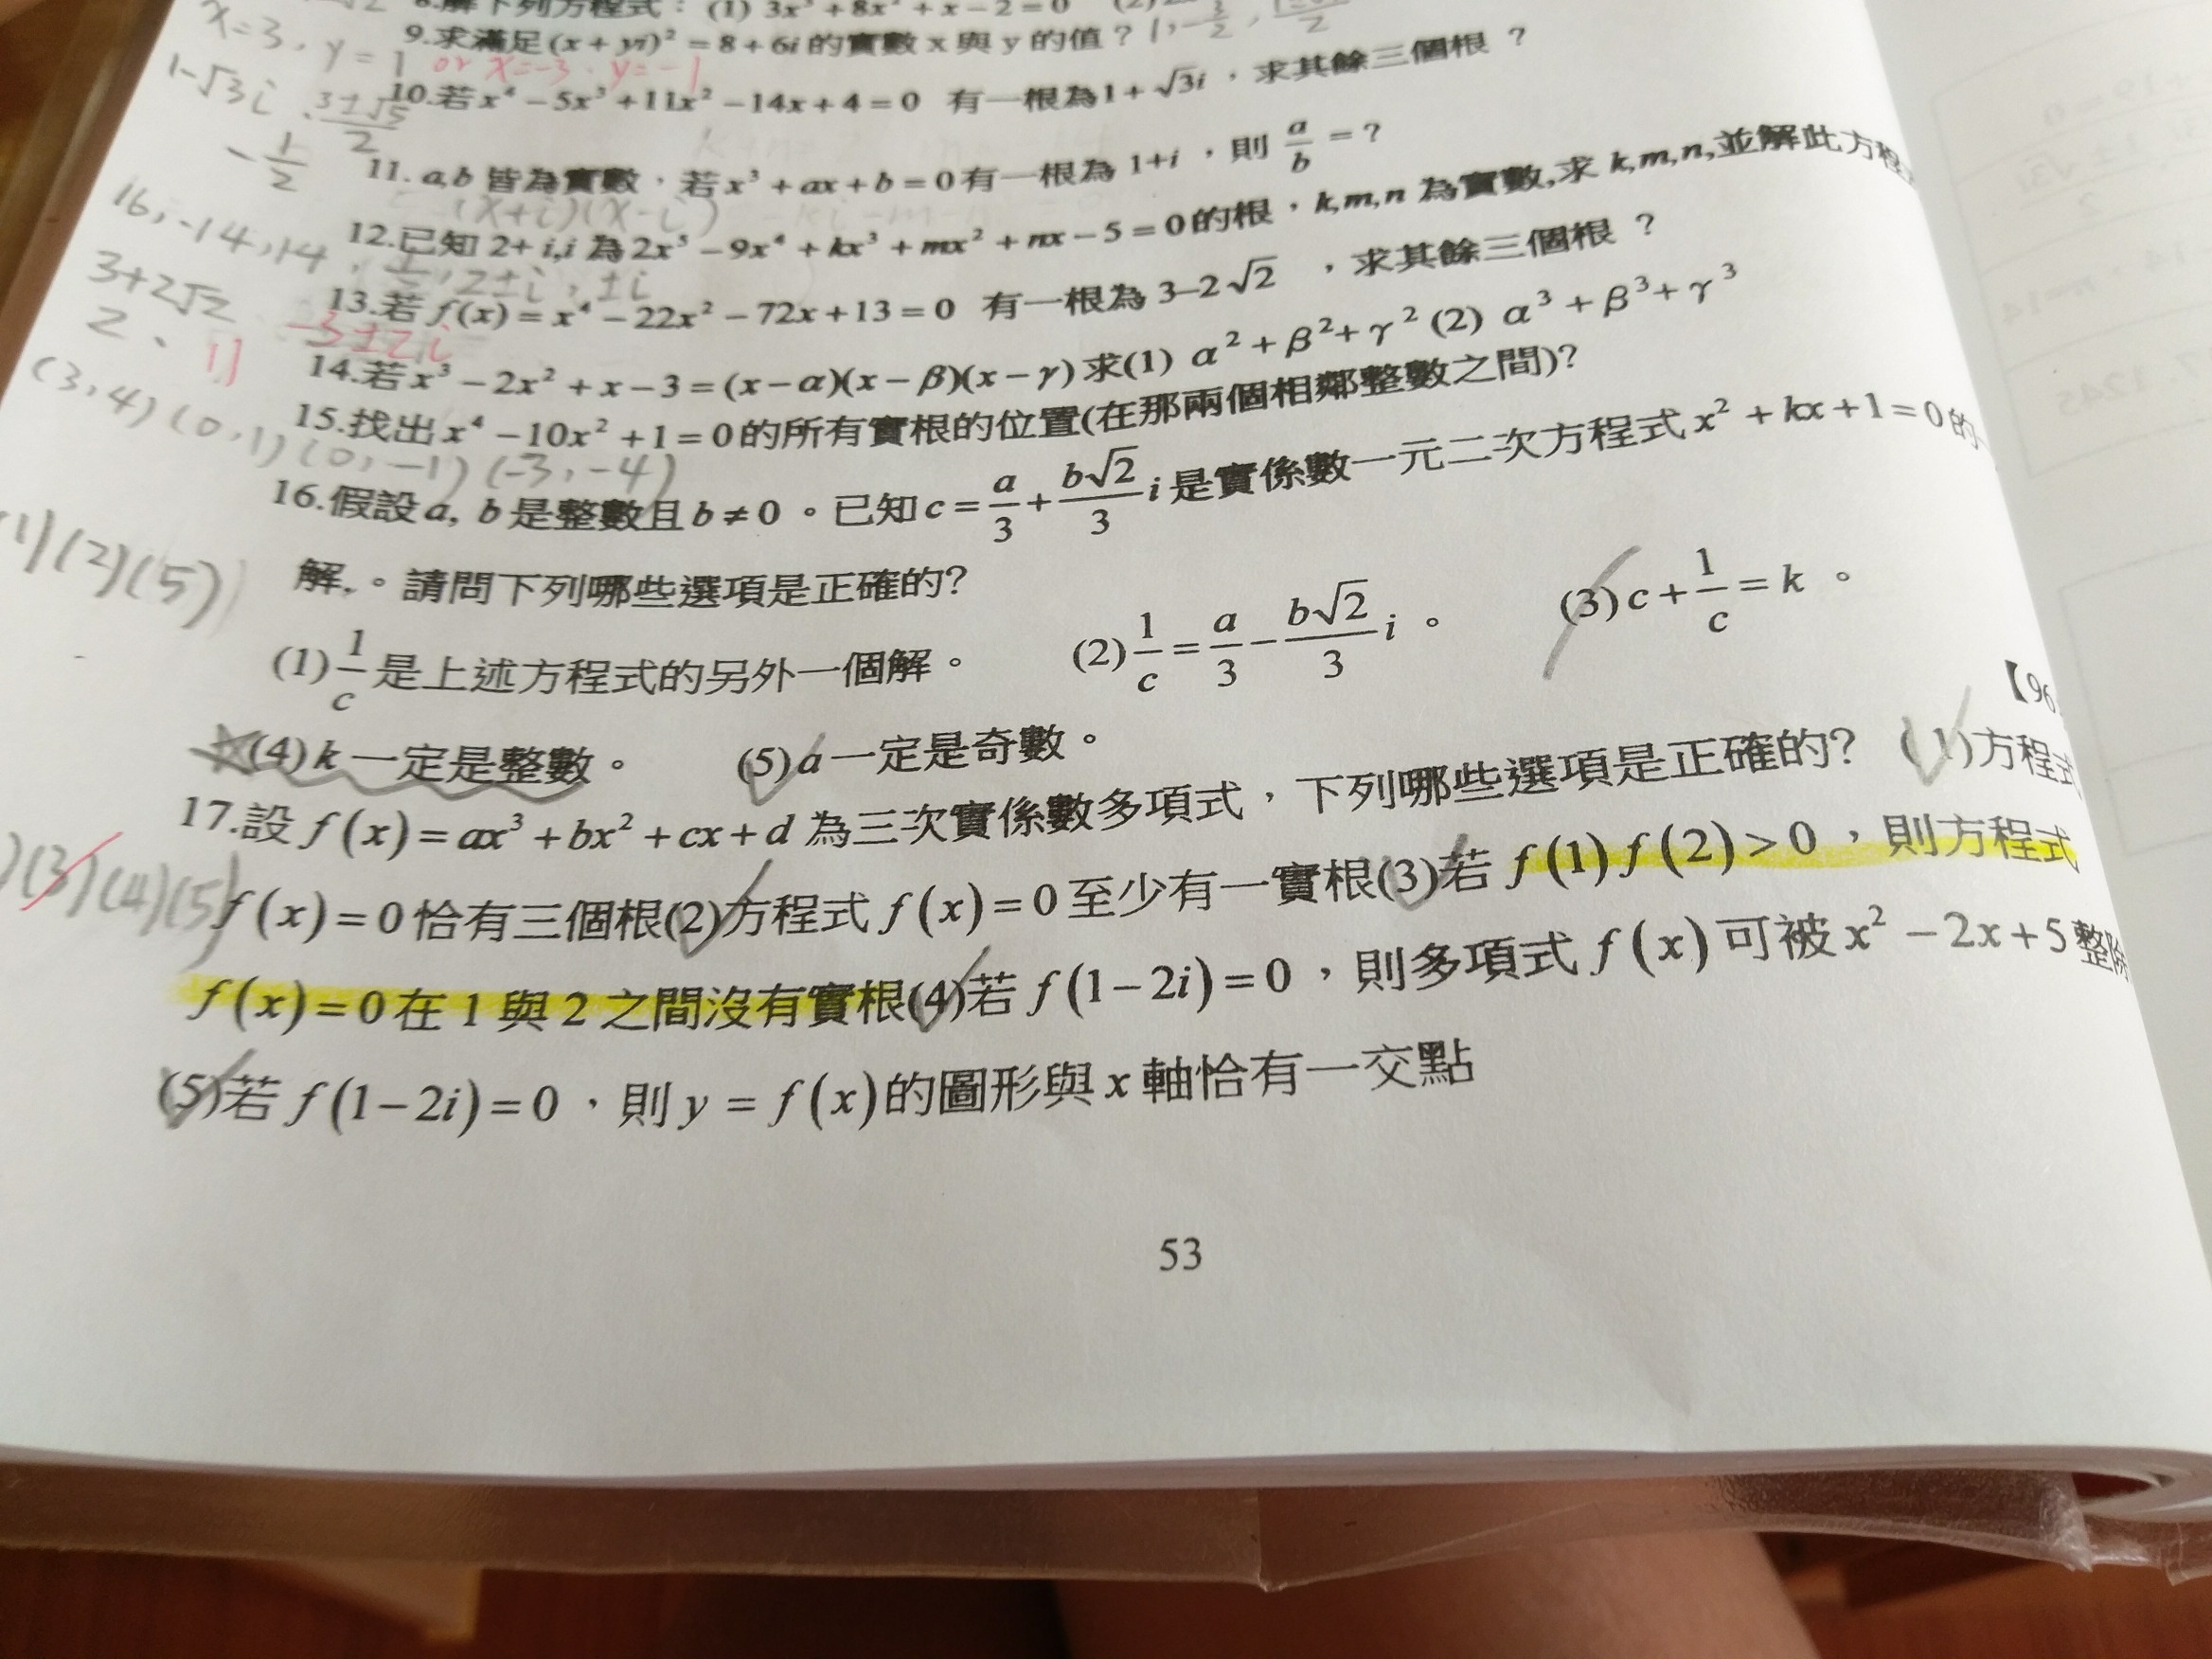 8.解下列方程式：(1) 3x³+8x²+x−2=0 (2)
9.求滿足(x+yi)²=8+6i的實數x與y的值？
x=3,y=1 or x=-3,y=-1
10.若x⁴−5x³+11x²−14x+4=0 有一根為1+√3i，求其餘三個根？
1-√3i, (3±√5)/2
11.a,b 皆為實數，若x³+ax+b=0有一根為1+i，則 a/b=？
-1/2
(x+i)(x-i)
12.已知2+i,i為2x⁵−9x⁴+kx³+mx²+nx−5=0的根，k,m,n為實數,求k,m,n,並解此方程
16,-14,14, 2±i,±i
13.若f(x)=x⁴−22x²−72x+13=0 有一根為3−2√2 ，求其餘三個根？
3+2√2 -3±2i
14.若x³−2x²+x−3=(x−α)(x−β)(x−γ)求(1) α²+β²+γ² (2) α³+β³+γ³
2、11
15.找出x⁴−10x²+1=0的所有實根的位置(在那兩個相鄰整數之間)?
(3,4)(0,1)(0,-1)(-3,-4)
16.假設a, b是整數且b≠0。已知c=a/3+(b√2/3)i是實係數一元二次方程式x²+kx+1=0的
解,。請問下列哪些選項是正確的?
1)(2)(5)
(1)1/c是上述方程式的另外一個解。 (2)1/c=a/3−(b√2/3)i。 (3)c+1/c=k。
(4)k一定是整數。 (5)a一定是奇數。 【96
17.設f(x)=ax³+bx²+cx+d為三次實係數多項式，下列哪些選項是正確的? (1)方程式
)(3)(4)(5)
f(x)=0恰有三個根(2)方程式f(x)=0至少有一實根(3)若f(1)f(2)>0，則方程式
f(x)=0在1與2之間沒有實根(4)若f(1−2i)=0，則多項式f(x)可被x²−2x+5整除
(5)若f(1−2i)=0，則y=f(x)的圖形與x軸恰有一交點
53